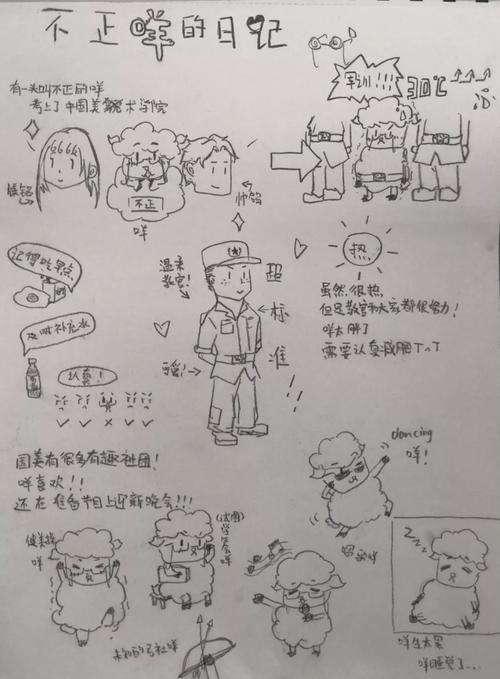 不正咩的日记
有一头叫不正的咩
考上了中国美术学院
不正
咩
帅的
军训!!!
30℃
热
虽然很热
但是教官和大家都很努力!
咩太胖了
需要认真减肥T^T
记得吃早点
及时补充水
认真!
温柔
教官!
可爱!
超
标
准
!!
国美有很多有趣社团!
咩喜欢!!
还在准备节目上迎新晚会!!!
健美操
咩
(试图)
学
咩
dancing
咩!
未知的弓社咩
zzz
咩生太累
咩睡觉了...